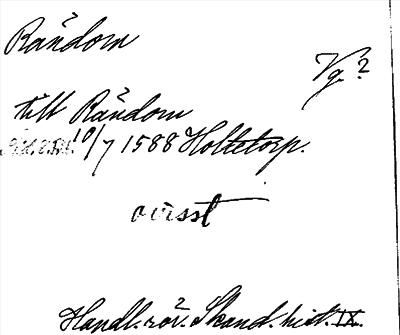 Råndom
Vg.?
till Råndom
10/7 1588 Holtetorp.
ovisst
Handl. rör. Skand. hist. IX.